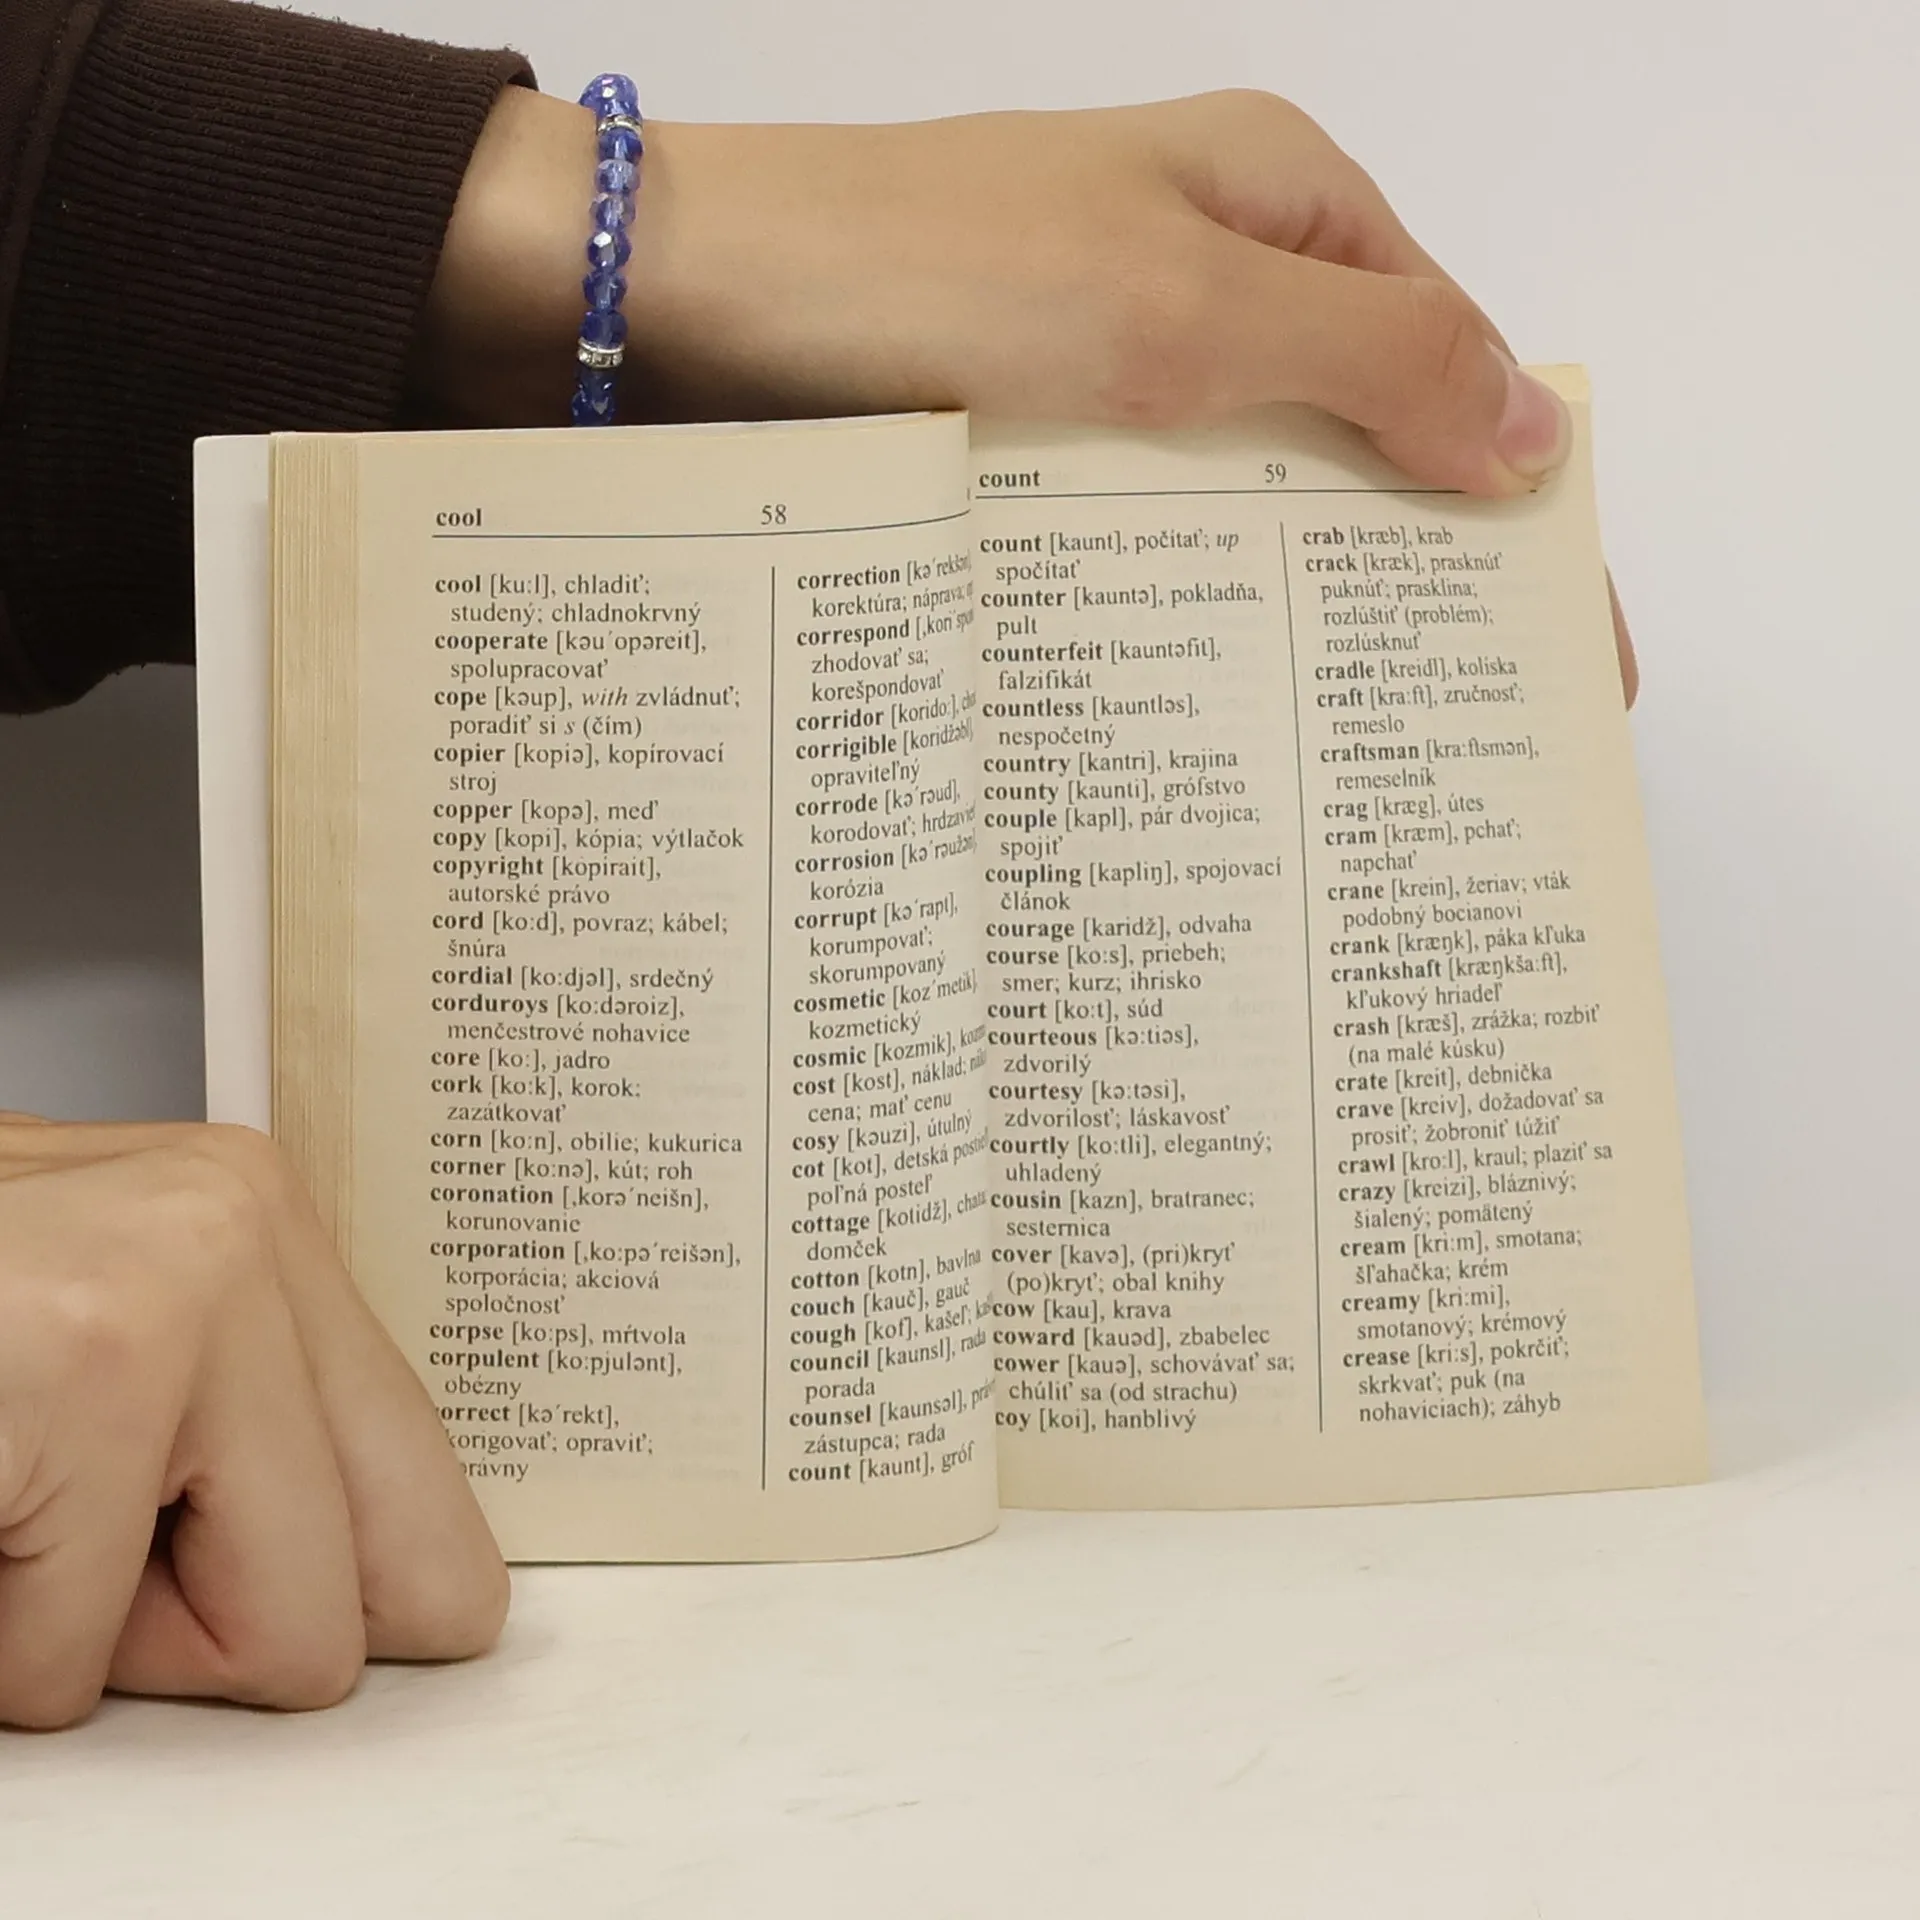 cool 58
cool [ku:l], chladiť;
studený; chladnokrvný
cooperate [kəu´opəreit],
spolupracovať
cope [kəup], with zvládnuť;
poradiť si s (čím)
copier [kopiə], kopírovací
stroj
copper [kopə], meď
copy [kopi], kópia; výtlačok
copyright [kopirait],
autorské právo
cord [ko:d], povraz; kábel;
šnúra
cordial [ko:djəl], srdečný
corduroys [ko:dəroiz],
menčestrové nohavice
core [ko:], jadro
cork [ko:k], korok;
zazátkovať
corn [ko:n], obilie; kukurica
corner [ko:nə], kút; roh
coronation [,korə´neišn],
korunovanie
corporation [,ko:pə´reišən],
korporácia; akciová
spoločnosť
corpse [ko:ps], mŕtvola
corpulent [ko:pjulənt],
obézny
orrect [kə´rekt],
korigovať; opraviť;
právny
correction [kə´rekšən],
korektúra; náprava;
correspond [,kori´spo
zhodovať sa;
korešpondovať
corridor [korido:],
corrigible [koridžəbl],
opraviteľný
corrode [kə´rəud],
korodovať; hrdzavie
corrosion [kə´rəužən],
korózia
corrupt [kə´rapt],
korumpovať;
skorumpovaný
cosmetic [koz´metik],
kozmetický
cosmic [kozmik],
cost [kost], náklad;
cena; mať cenu
cosy [kəuzi], útulný
cot [kot], detská
poľná posteľ
cottage [kotidž],
domček
cotton [kotn], bavlna
couch [kauč], gauč
cough [kof], kašeľ;
council [kaunsl], rada
porada
counsel [kaunsəl],
zástupca; rada
count [kaunt], gróf
count 59
count [kaunt], počítať; up
spočítať
counter [kauntə], pokladňa,
pult
counterfeit [kauntəfit],
falzifikát
countless [kauntləs],
nespočetný
country [kantri], krajina
county [kaunti], grófstvo
couple [kapl], pár dvojica;
spojiť
coupling [kapliŋ], spojovací
článok
courage [karidž], odvaha
course [ko:s], priebeh;
smer; kurz; ihrisko
court [ko:t], súd
courteous [kə:tiəs],
zdvorilý
courtesy [kə:təsi],
zdvorilosť; láskavosť
courtly [ko:tli], elegantný;
uhladený
cousin [kazn], bratranec;
sesternica
cover [kavə], (pri)kryť
(po)kryť; obal knihy
cow [kau], krava
coward [kauəd], zbabelec
cower [kauə], schovávať sa;
chúliť sa (od strachu)
coy [koi], hanblivý
crab [kræb], krab
crack [kræk], prasknúť
puknúť; prasklina;
rozlúštiť (problém);
rozlúsknuť
cradle [kreidl], kolíska
craft [kra:ft], zručnosť;
remeslo
craftsman [kra:ftsmən],
remeselník
crag [kræg], útes
cram [kræm], pchať;
napchať
crane [krein], žeriav; vták
podobný bocianovi
crank [kræŋk], páka kľuka
crankshaft [kræŋkša:ft],
kľukový hriadeľ
crash [kræš], zrážka; rozbiť
(na malé kúsku)
crate [kreit], debnička
crave [kreiv], dožadovať sa
prosiť; žobroniť túžiť
crawl [kro:l], kraul; plaziť sa
crazy [kreizi], bláznivý;
šialený; pomätený
cream [kri:m], smotana;
šľahačka; krém
creamy [kri:mi],
smotanový; krémový
crease [kri:s], pokrčiť;
skrkvať; puk (na
nohaviciach); záhyb